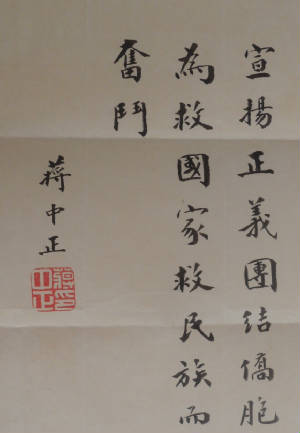 宣揚正義團結僑胞
為救國家救民族而
奮鬥
蔣中正
蔣中正印